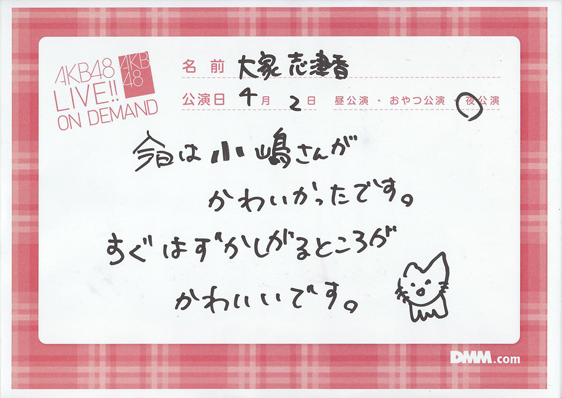 AKB48
LIVE!!
ON DEMAND
AKB
48
名前 大家志津香
公演日 4月2日 昼公演・おやつ公演・夜公演
今日は小嶋さんが
かわいかったです。
すぐはずかしがるところが
かわいいです。
DMM.com